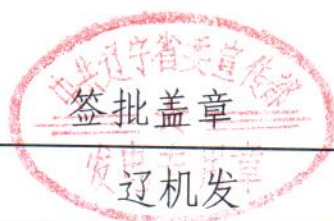 中共辽宁省委宣传部
签批盖章
发电专用章
辽机发